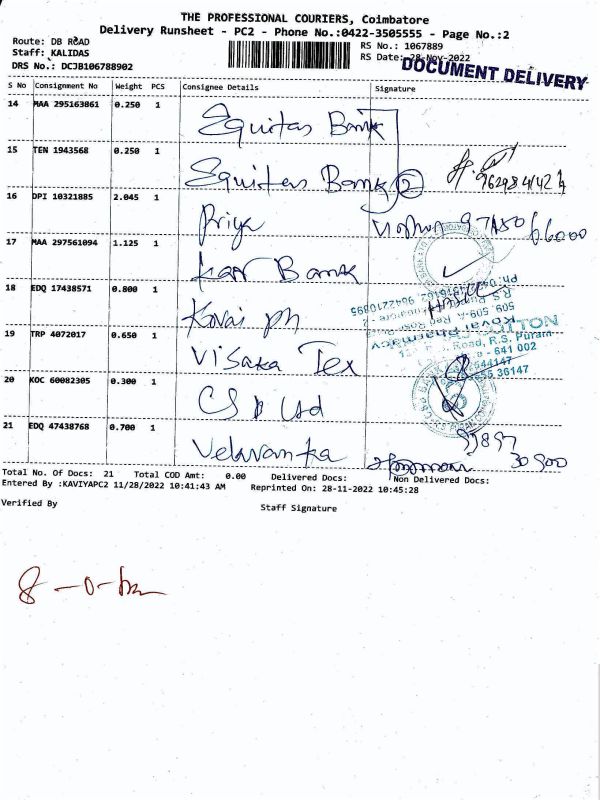 THE PROFESSIONAL COURIERS, Coimbatore
Delivery Runsheet - PC2 - Phone No.:0422-3505555 - Page No.:2
Route: DB ROAD
RS No.: 1067889
Staff: KALIDAS
RS Date: 28-Nov-2022
DRS No.: DCJB106788902
DOCUMENT DELIVERY
S No Consignment No Weight PCS Consignee Details Signature
14 MAA 295163861 0.250 1 Equitas Bank
15 TEN 1943568 0.250 1 Equitas Bank 2
16 DPI 10321885 2.045 1 Priya
17 MAA 297561094 1.125 1 Bank
18 EDQ 17438571 0.800 1 Kovai ph
19 TRP 4072017 0.650 1 Visaka Tex
20 KOC 60082305 0.300 1 CSB Ltd
21 EDQ 47438768 0.700 1
Kovai Pharmacy
Road, R.S. Puram
- 641 002
36147
Total No. Of Docs: 21 Total COD Amt: 0.00 Delivered Docs: Non Delivered Docs:
Entered By :KAVIYAPC2 11/28/2022 10:41:43 AM Reprinted On: 28-11-2022 10:45:28
Verified By
Staff Signature